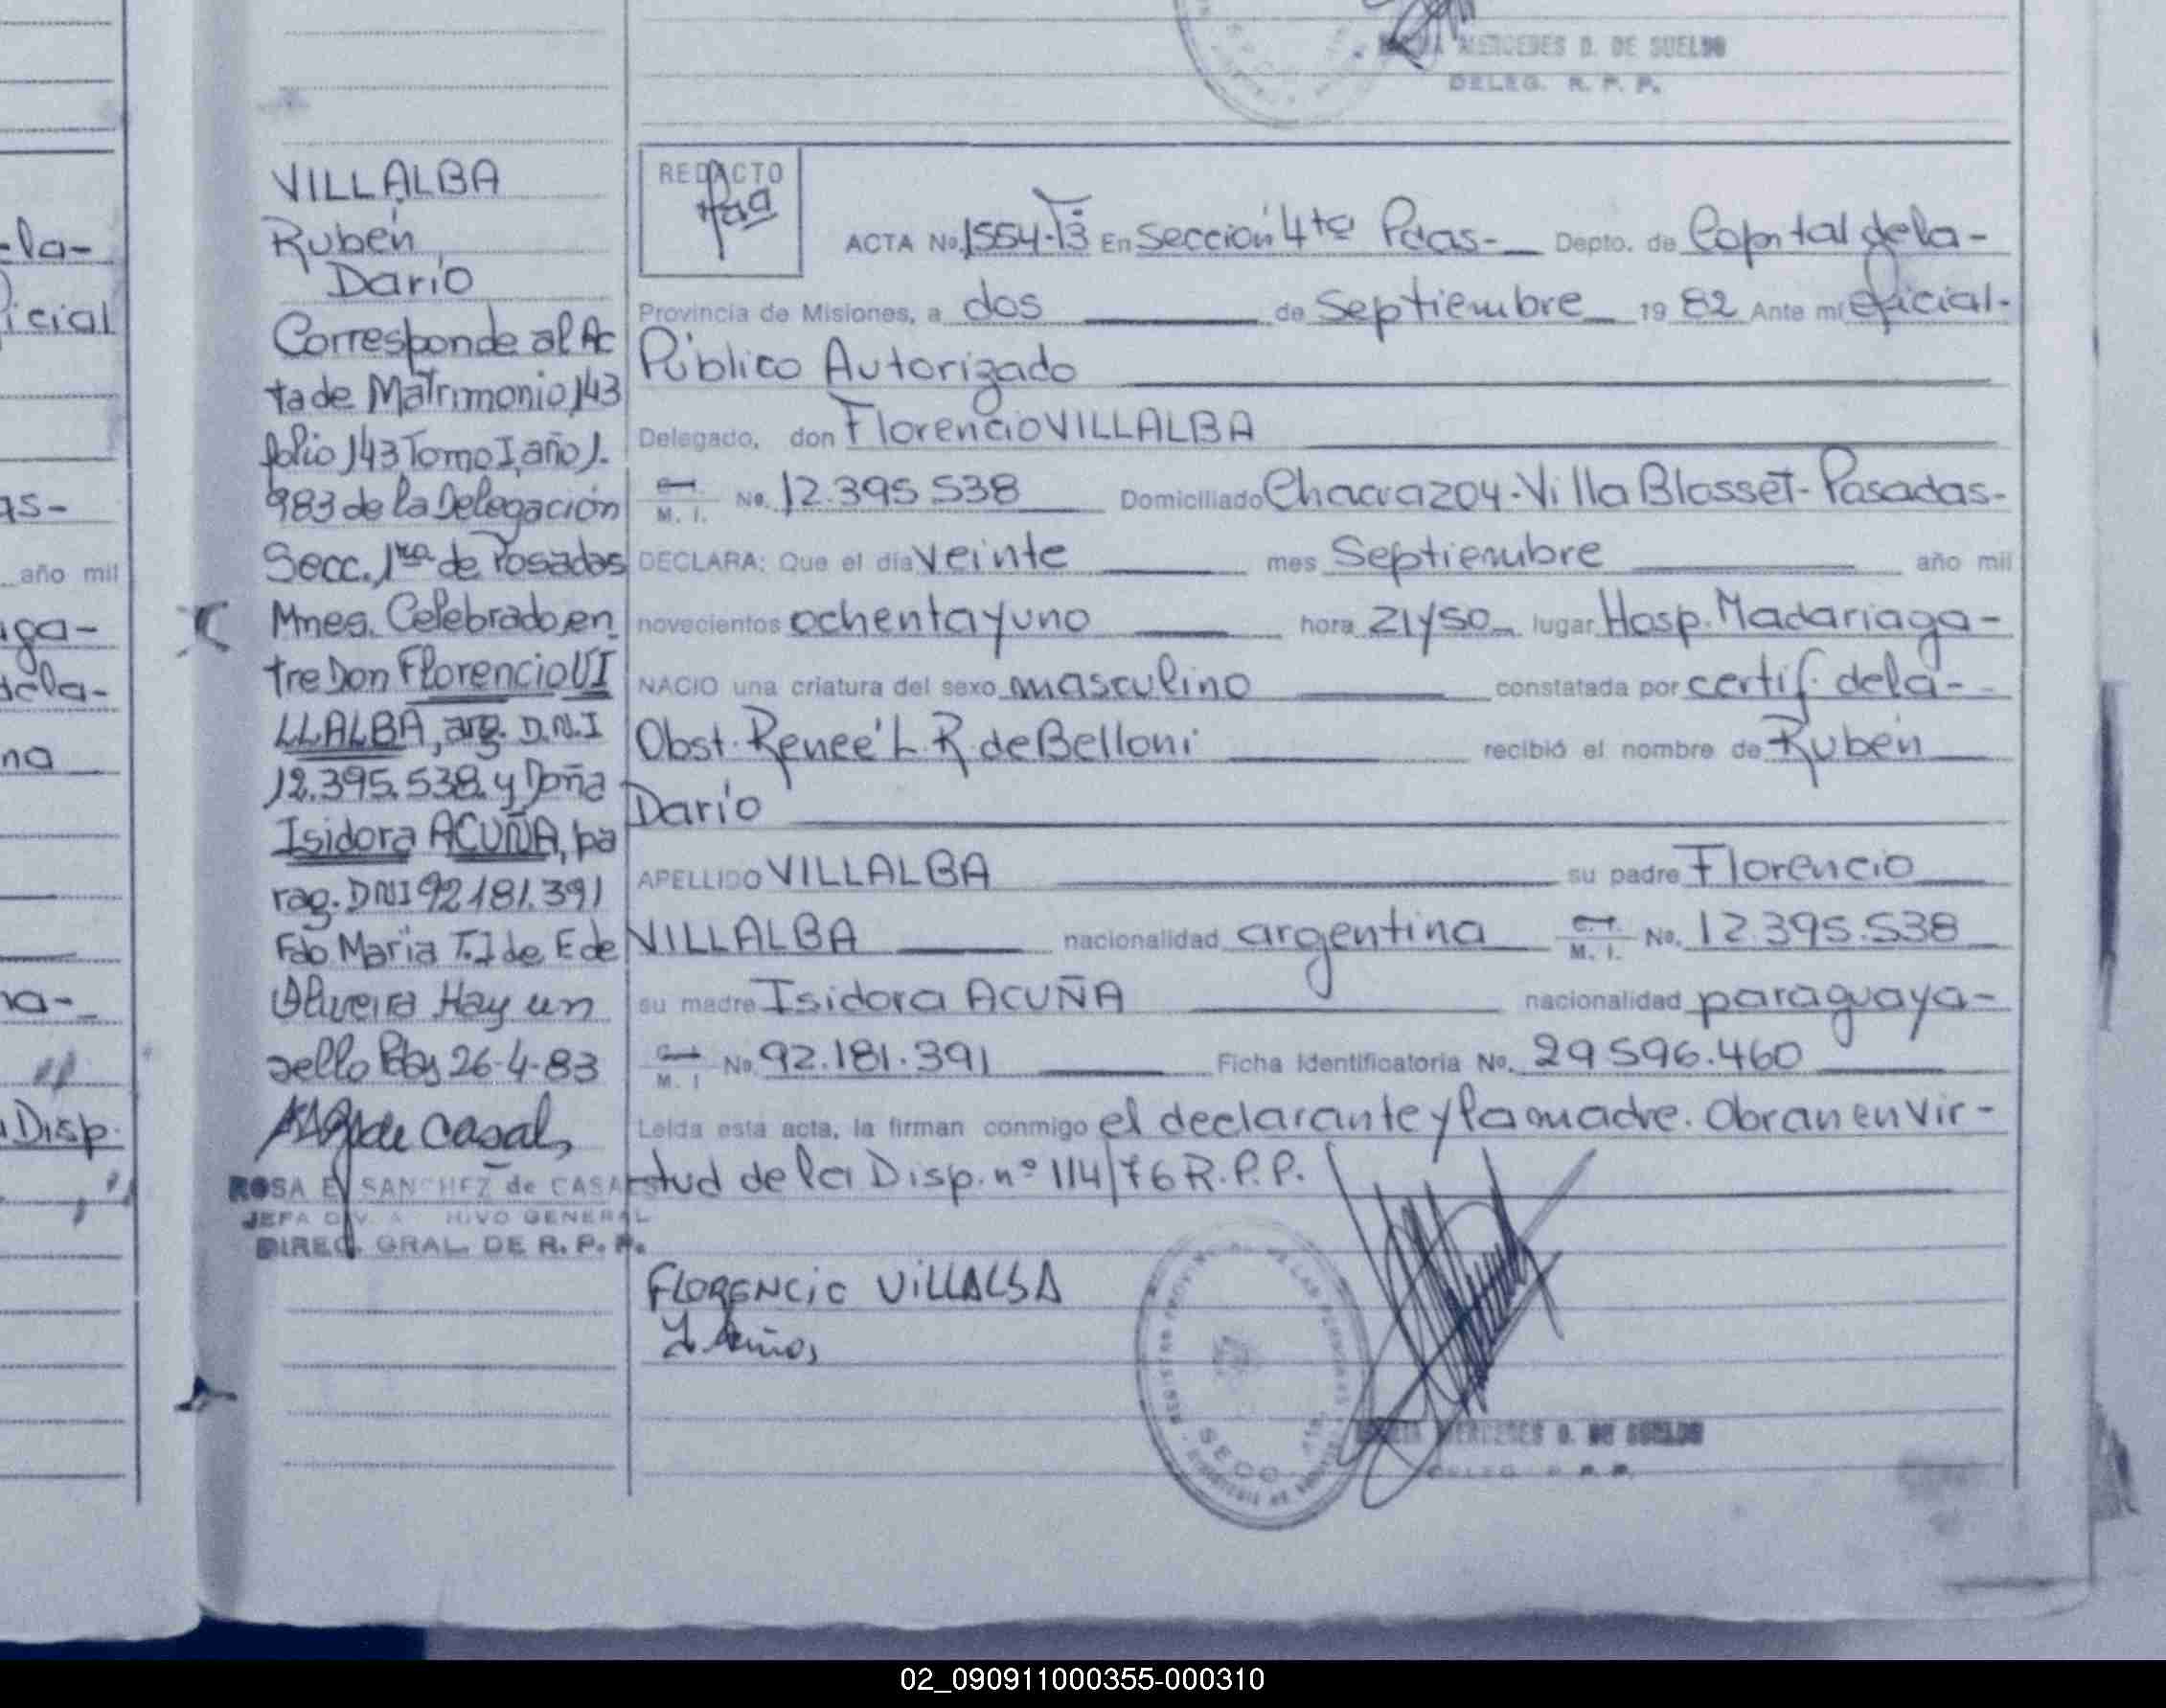 MERCEDES D. DE SUELDO
DELEG. R. P. P.
la-
icial
as-
año mil
aga-
dela-
na
na-
Disp.
VILLALBA
Rubén
Darío
Corresponde al Ac
ta de Matrimonio 143
folio 143 Tomo I, año 1.
983 de la Delegación
Secc. 1ra de Posadas
Mnes. Celebrado en
tre Don Florencio VI
LLALBA, arg. D.N.I
12.395.538 y Doña
Isidora ACUÑA, pa
rag. DNI 92.181.391
Fdo Maria T. J de E de
Oliveira Hay un
sello Pdas 26-4-83
de Casal,
ROSA E SANCHEZ de CASAL
JEFA DIV. A HIVO GENERAL
DIREC. GRAL. DE R. P. P.
REDACTO
ACTA No. 1554-T3 En Sección 4ta Pdas- Depto. de Capital de la-
Provincia de Misiones, a dos de Septiembre 19 82 Ante mí oficial-
Público Autorizado
Delegado, don Florencio VILLALBA
C. I.
M. I. No. 12.395.538 Domiciliado Chacra 204-Villa Blosset-Posadas-
DECLARA: Que el día veinte mes Septiembre año mil
novecientos ochenta y uno hora 21y50 lugar Hosp. Madariaga-
NACIO una criatura del sexo masculino constatada por certif. de la-
Obst. Reneé L. R. de Belloni recibió el nombre de Rubén
Darío
APELLIDO VILLALBA su padre Florencio
VILLALBA nacionalidad argentina C. I. M. I. No. 12.395.538
su madre Isidora ACUÑA nacionalidad paraguaya-
C. I. M. I No. 92.181.391 Ficha Identificatoria No. 29 596.460
Leida esta acta, la firman conmigo el declarante y la madre. Obran en vir-
tud de la Disp. nº 114/76 R.P.P.
FLORENCIO VILLALBA
MERCEDES D. DE SUELDO
DELEG R. P.
SECC
02_090911000355-000310